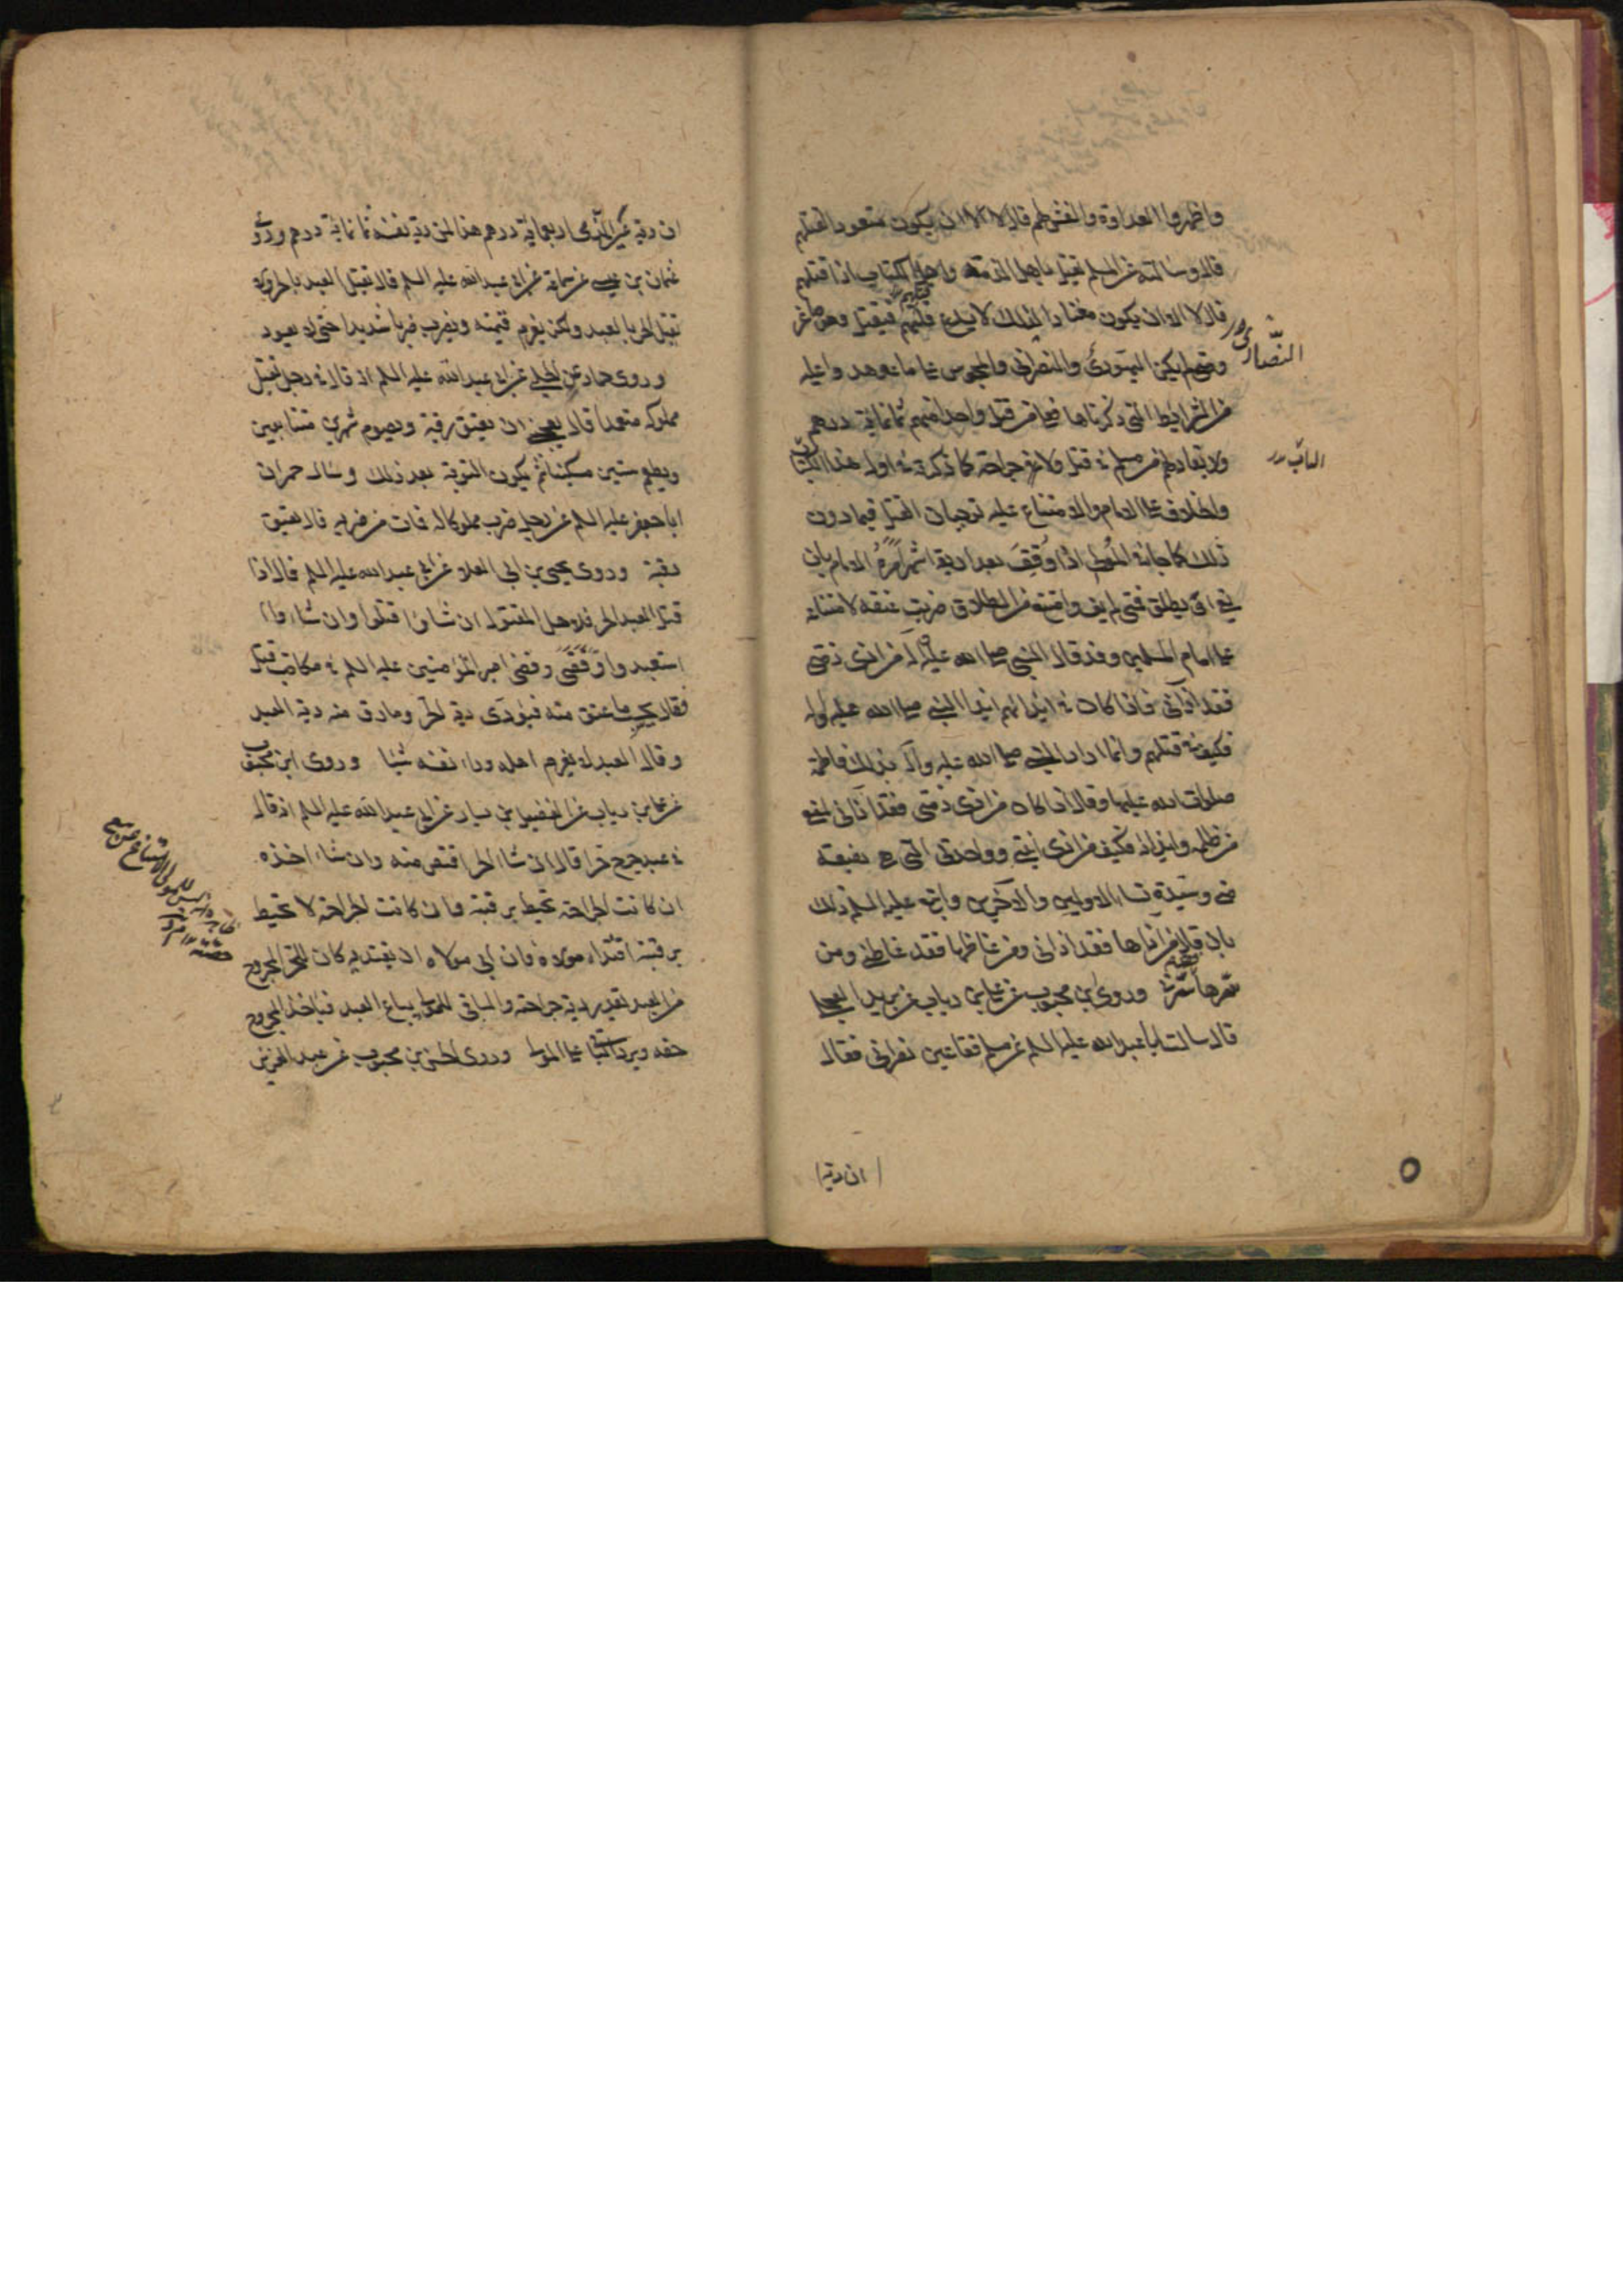 واظهروا العداوة والغش لهم قال لا الا ان يكون متعودا لقتلهم
قال وسالته عن المسلم يقتل باهل الذمة واهل الكتاب اذا قتلهم
قال لا الا ان يكون معتادا لذلك لا يدع قتلهم فيقتل وهو صاغر
ومتى لم يكن اليهودى والنصرانى والمجوس على ما عوهدوا عليه
من الشرايط التى ذكرناها فعلى من قتل واحدا منهم ثمانمائة درهم
ولا يقاد لهم من مسلم فى قتل ولا جراحة كما ذكرته فى اول هذا الباب
والخلاف على الامام والامتناع عليه يوجبان القتل فيما دون
ذلك كما جاء فى المولى اذا وقف بعد اربعة اشهر امره الامام بان
يفئ او يطلق فمتى لم يف وامتنع من الطلاق ضربت عنقه لامتناعه
على امام المسلمين وقد قال النبى صلى الله عليه وآله من اذى ذمتى
فقد اذانى فاذا كان فى ايذائهم ايذاء النبى صلى الله عليه وآله
فكيف فى قتلهم وانما اراد النبى صلى الله عليه وآله بذلك فاطمة
صلوات الله عليها وقال اذا كان من اذى ذمتى فقد اذانى لمنع
من ظلمه وايذائه فكيف من اذى ابنتى وواحدتى التى هى بضعة
منى وسيدة نساء الاولين والآخرين واتبع عليه السلم ذلك
بان قال من اذاها فقد اذانى ومن غاظها فقد غاظنى ومن
سرها سرنى وروى ابن محبوب عن على بن رياب عن بريد العجلى
قال سالت ابا عبد الله عليه السلم عن مسلم فقأ عين نصرانى فقال
النصارى
الباب
ان دية
ان دية عين الذمى اربعمائة درهم هذا لمن دية نفسه ثمانمائة درهم وروى
عثمان بن عيسى عن سماعة عن ابى عبد الله عليه السلم قال يقتل العبد بالحر ولا
يقتل الحر بالعبد ولكن يغرم قيمته ويضرب ضربا شديدا حتى لا يعود
وروى حماد عن الحلبى عن ابى عبد الله عليه السلم انه قال فى رجل يقتل
مملوكه متعمدا قال يعجبنى ان يعتق رقبة ويصوم شهرين متتابعين
ويطعم ستين مسكينا ثم يكون التوبة بعد ذلك وسال حمران
ابا جعفر عليه السلم عن رجل ضرب مملوكا له فمات من ضربه قال يعتق
رقبة وروى يحيى بن ابى العلا عن ابى عبد الله عليه السلم قال اذا
قتل العبد الحر فلاهل المقتول ان شاؤا قتلوا وان شاؤا
استعبدوا وقضى امير المؤمنين عليه السلم فى مكاتب قتل
فقال يحسب ما عتق منه فيؤدى دية الحر ومارق منه دية العبد
وقال العبد لا يغرم اهله وراء نفسه شيئا وروى ابن محبوب
عن على بن رياب عن الفضيل بن يسار عن ابى عبد الله عليه السلم انه قال
فى عبد جرح حرا قال ان شاء الحر اقتص منه وان شاء اخذه
ان كانت الجراحة تحيط برقبته وان كانت الجراحة لا تحيط
برقبته افتداه مولاه فان ابى مولاه ان يفتديه كان للحر المجروح
من العبد بقدر دية جراحته والباقى للمولى يباع العبد فياخذ المجروح
حقه ويرد الباقى على المولى وروى الحسن بن محبوب عن عبد العزيز